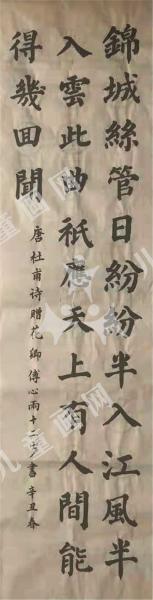 錦城絲管日紛紛半入江風半
入雲此曲衹應天上有人間能
得幾回聞
唐杜甫诗贈花卿傅心雨十二岁書辛丑春
儿童画网